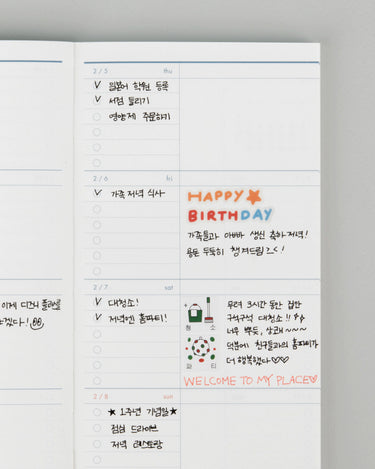 2/5 thu
V 일본어 학원 등록
V 서점 들리기
영양제 주문하기
2/6 fri
V 가족 저녁 식사
HAPPY
BIRTHDAY
가족들과 아빠 생신 축하 저녁!
용돈 두둑히 챙겨드림 >.<!
2/7 sat
V 대청소!
V 저녁엔 홈파티!
청소
파티
무려 3시간 동안 집안
구석구석 대청소!!
너무 뿌듯, 상쾌~~~
덕분에 친구들과의 홈파티가
더 행복했다♡♡
WELCOME TO MY PLACE♡
이제 디즈니
겠다!
2/8 sun
★ 1주년 기념일★
점심 드라이브
저녁 레스토랑